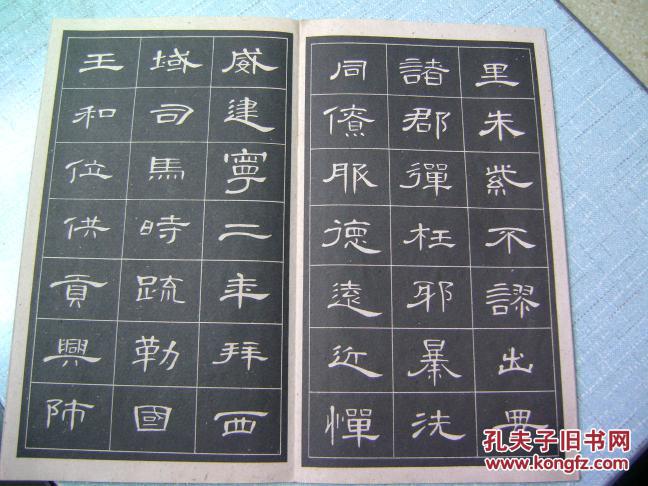 里朱紫不謬出典
諸郡彈枉邪暴洗
同僚服德遠近憚
威建寧二年拜西
域司馬時疏勒國
王和位供貢興師
孔夫子旧书网
www.kongfz.com